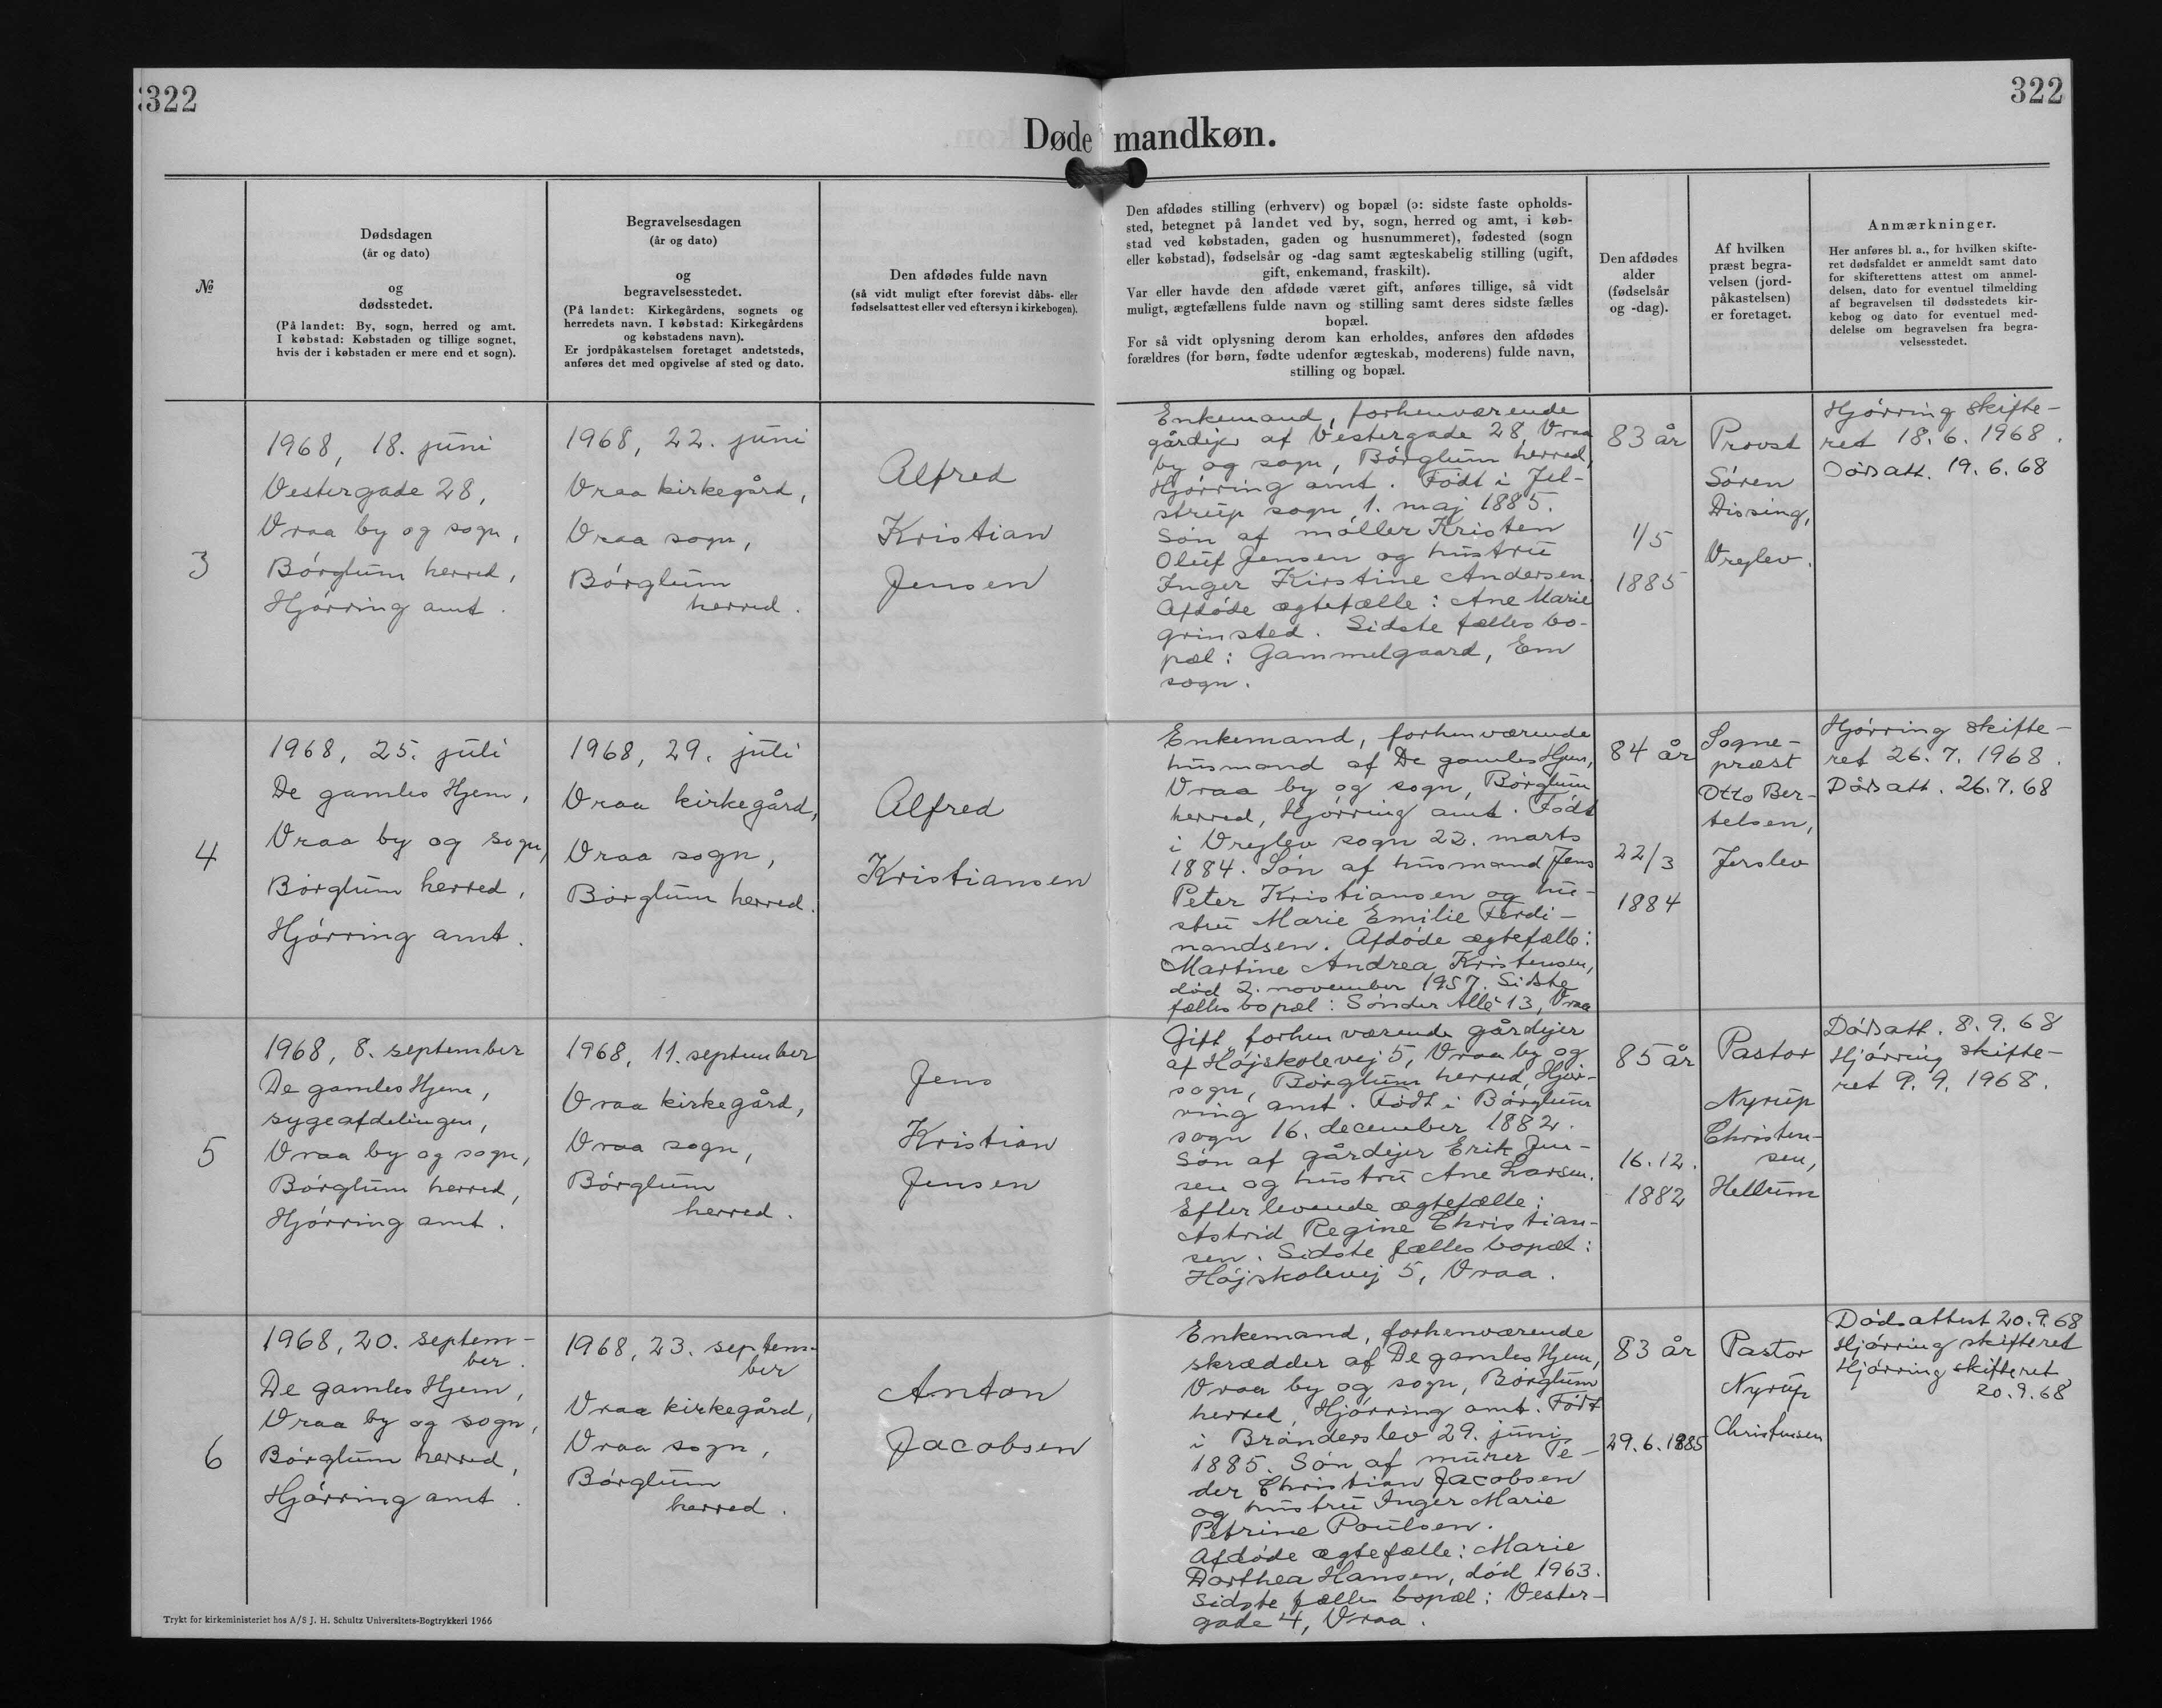 322
322
Døde mandkøn.
№
Dødsdagen
(år og dato)
og
dødsstedet.
(På landet: By, sogn, herred og amt.
I købstad: Købstaden og tillige sognet,
hvis der i købstaden er mere end et sogn).
Begravelsesdagen
(år og dato)
og
begravelsesstedet.
(På landet: Kirkegårdens, sognets og
herredets navn. I købstad: Kirkegårdens
og købstadens navn).
Er jordpåkastelsen foretaget andetsteds,
anføres det med opgivelse af sted og dato.
Den afdødes fulde navn
(så vidt muligt efter forevist dåbs- eller
fødselsattest eller ved eftersyn i kirkebogen).
Den afdødes stilling (erhverv) og bopæl (ɔ: sidste faste opholds-
sted, betegnet på landet ved by, sogn, herred og amt, i køb-
stad ved købstaden, gaden og husnummeret), fødested (sogn
eller købstad), fødselsår og -dag samt ægteskabelig stilling (ugift,
gift, enkemand, fraskilt).
Var eller havde den afdøde været gift, anføres tillige, så vidt
muligt, ægtefællens fulde navn og stilling samt deres sidste fælles
bopæl.
For så vidt oplysning derom kan erholdes, anføres den afdødes
forældres (for børn, fødte udenfor ægteskab, moderens) fulde navn,
stilling og bopæl.
Den afdødes
alder
(fødselsår
og -dag).
Af hvilken
præst begra-
velsen (jord-
påkastelsen)
er foretaget.
Anmærkninger.
Her anføres bl. a., for hvilken skifte-
ret dødsfaldet er anmeldt samt dato
for skifterettens attest om anmel-
delsen, dato for eventuel tilmelding
af begravelsen til dødsstedets kir-
kebog og dato for eventuel med-
delelse om begravelsen fra begra-
velsesstedet.
3
1968, 18. juni
Vestergade 28,
Vraa by og sogn,
Börglum herred,
Hjörring amt.
1968, 22. juni
Vraa kirkegård,
Vraa sogn,
Börglum
herred.
Alfred
Kristian
Jensen
Enkemand, forhenværende
gårdejer af Vestergade 28, Vraa
by og sogn, Börglum herred,
Hjörring amt. Födt i Jel-
strup sogn 1. maj 1885.
Sön af möller Kristen
Oluf Jensen og hustru
Inger Kirstine Andersen.
Afdöde ægtefælle: Ane Marie
Grinsted. Sidste fælles bo-
pæl: Gammelgaard, Em
sogn.
83 år
1/5
1885
Provst
Sören
Dissing,
Vrejlev.
Hjörring skifte-
ret 18. 6. 1968.
Dödsatt. 19. 6. 68
4
1968, 25. juli
De gamles Hjem,
Vraa by og sogn,
Börglum herred,
Hjörring amt.
1968, 29. juli
Vraa kirkegård,
Vraa sogn,
Börglum herred.
Alfred
Kristiansen
Enkemand, forhenværende
husmand af De gamles Hjem,
Vraa by og sogn, Börglum
herred, Hjörring amt. Födt
i Vrejlev sogn 22. marts
1884. Sön af husmand Jens
Peter Kristiansen og hu-
stru Marie Emilie Ferdi-
nandsen. Afdöde ægtefælle:
Martine Andrea Kristensen,
död 2. november 1957. Sidste
fælles bopæl: Sönder Allé 13, Vraa
84 år
22/3
1884
Sogne-
præst
Otto Ber-
telsen,
Jerslev
Hjörring skifte-
ret 26. 7. 1968.
Dödsatt. 26. 7. 68
5
1968, 8. september
De gamles Hjem,
sygeafdelingen,
Vraa by og sogn,
Börglum herred,
Hjörring amt.
1968, 11. september
Vraa kirkegård,
Vraa sogn,
Börglum
herred.
Jens
Kristian
Jensen
Gift, forhenværende gårdejer
af Höjskolevej 5, Vraa by og
sogn, Börglum herred, Hjör-
ring amt. Födt i Börglum
sogn 16. december 1882.
Sön af gårdejer Erik Jen-
sen og hustru Ane Larsen.
Efterlevende ægtefælle:
Astrid Regine Christian-
sen. Sidste fælles bopæl:
Höjskolevej 5, Vraa.
85 år
16. 12.
1882
Pastor
Nyrup
Christen-
sen,
Hellum
Dödsatt. 8. 9. 68
Hjörring skifte-
ret 9. 9. 1968.
6
1968, 20. septem-
ber.
De gamles Hjem,
Vraa by og sogn,
Börglum herred,
Hjörring amt.
1968, 23. septem-
ber
Vraa kirkegård,
Vraa sogn,
Börglum
herred.
Anton
Jacobsen
Enkemand, forhenværende
skrædder af De gamles Hjem,
Vraa by og sogn, Börglum
herred, Hjörring amt. Födt
i Brönderslev 29. juni
1885. Sön af murer Pe-
der Christian Jacobsen
og hustru Inger Marie
Petrine Poulsen.
Afdöde ægtefælle: Marie
Dorthea Hansen, död 1963.
Sidste fælles bopæl: Vester-
gade 4, Vraa.
83 år
29. 6. 1885
Pastor
Nyrup
Christensen
Dödsattest 20. 9. 68
Hjörring skifteret
Hjörring skifteret
20. 9. 68
Trykt for kirkeministeriet hos A/S J. H. Schultz Universitets-Bogtrykkeri 1966